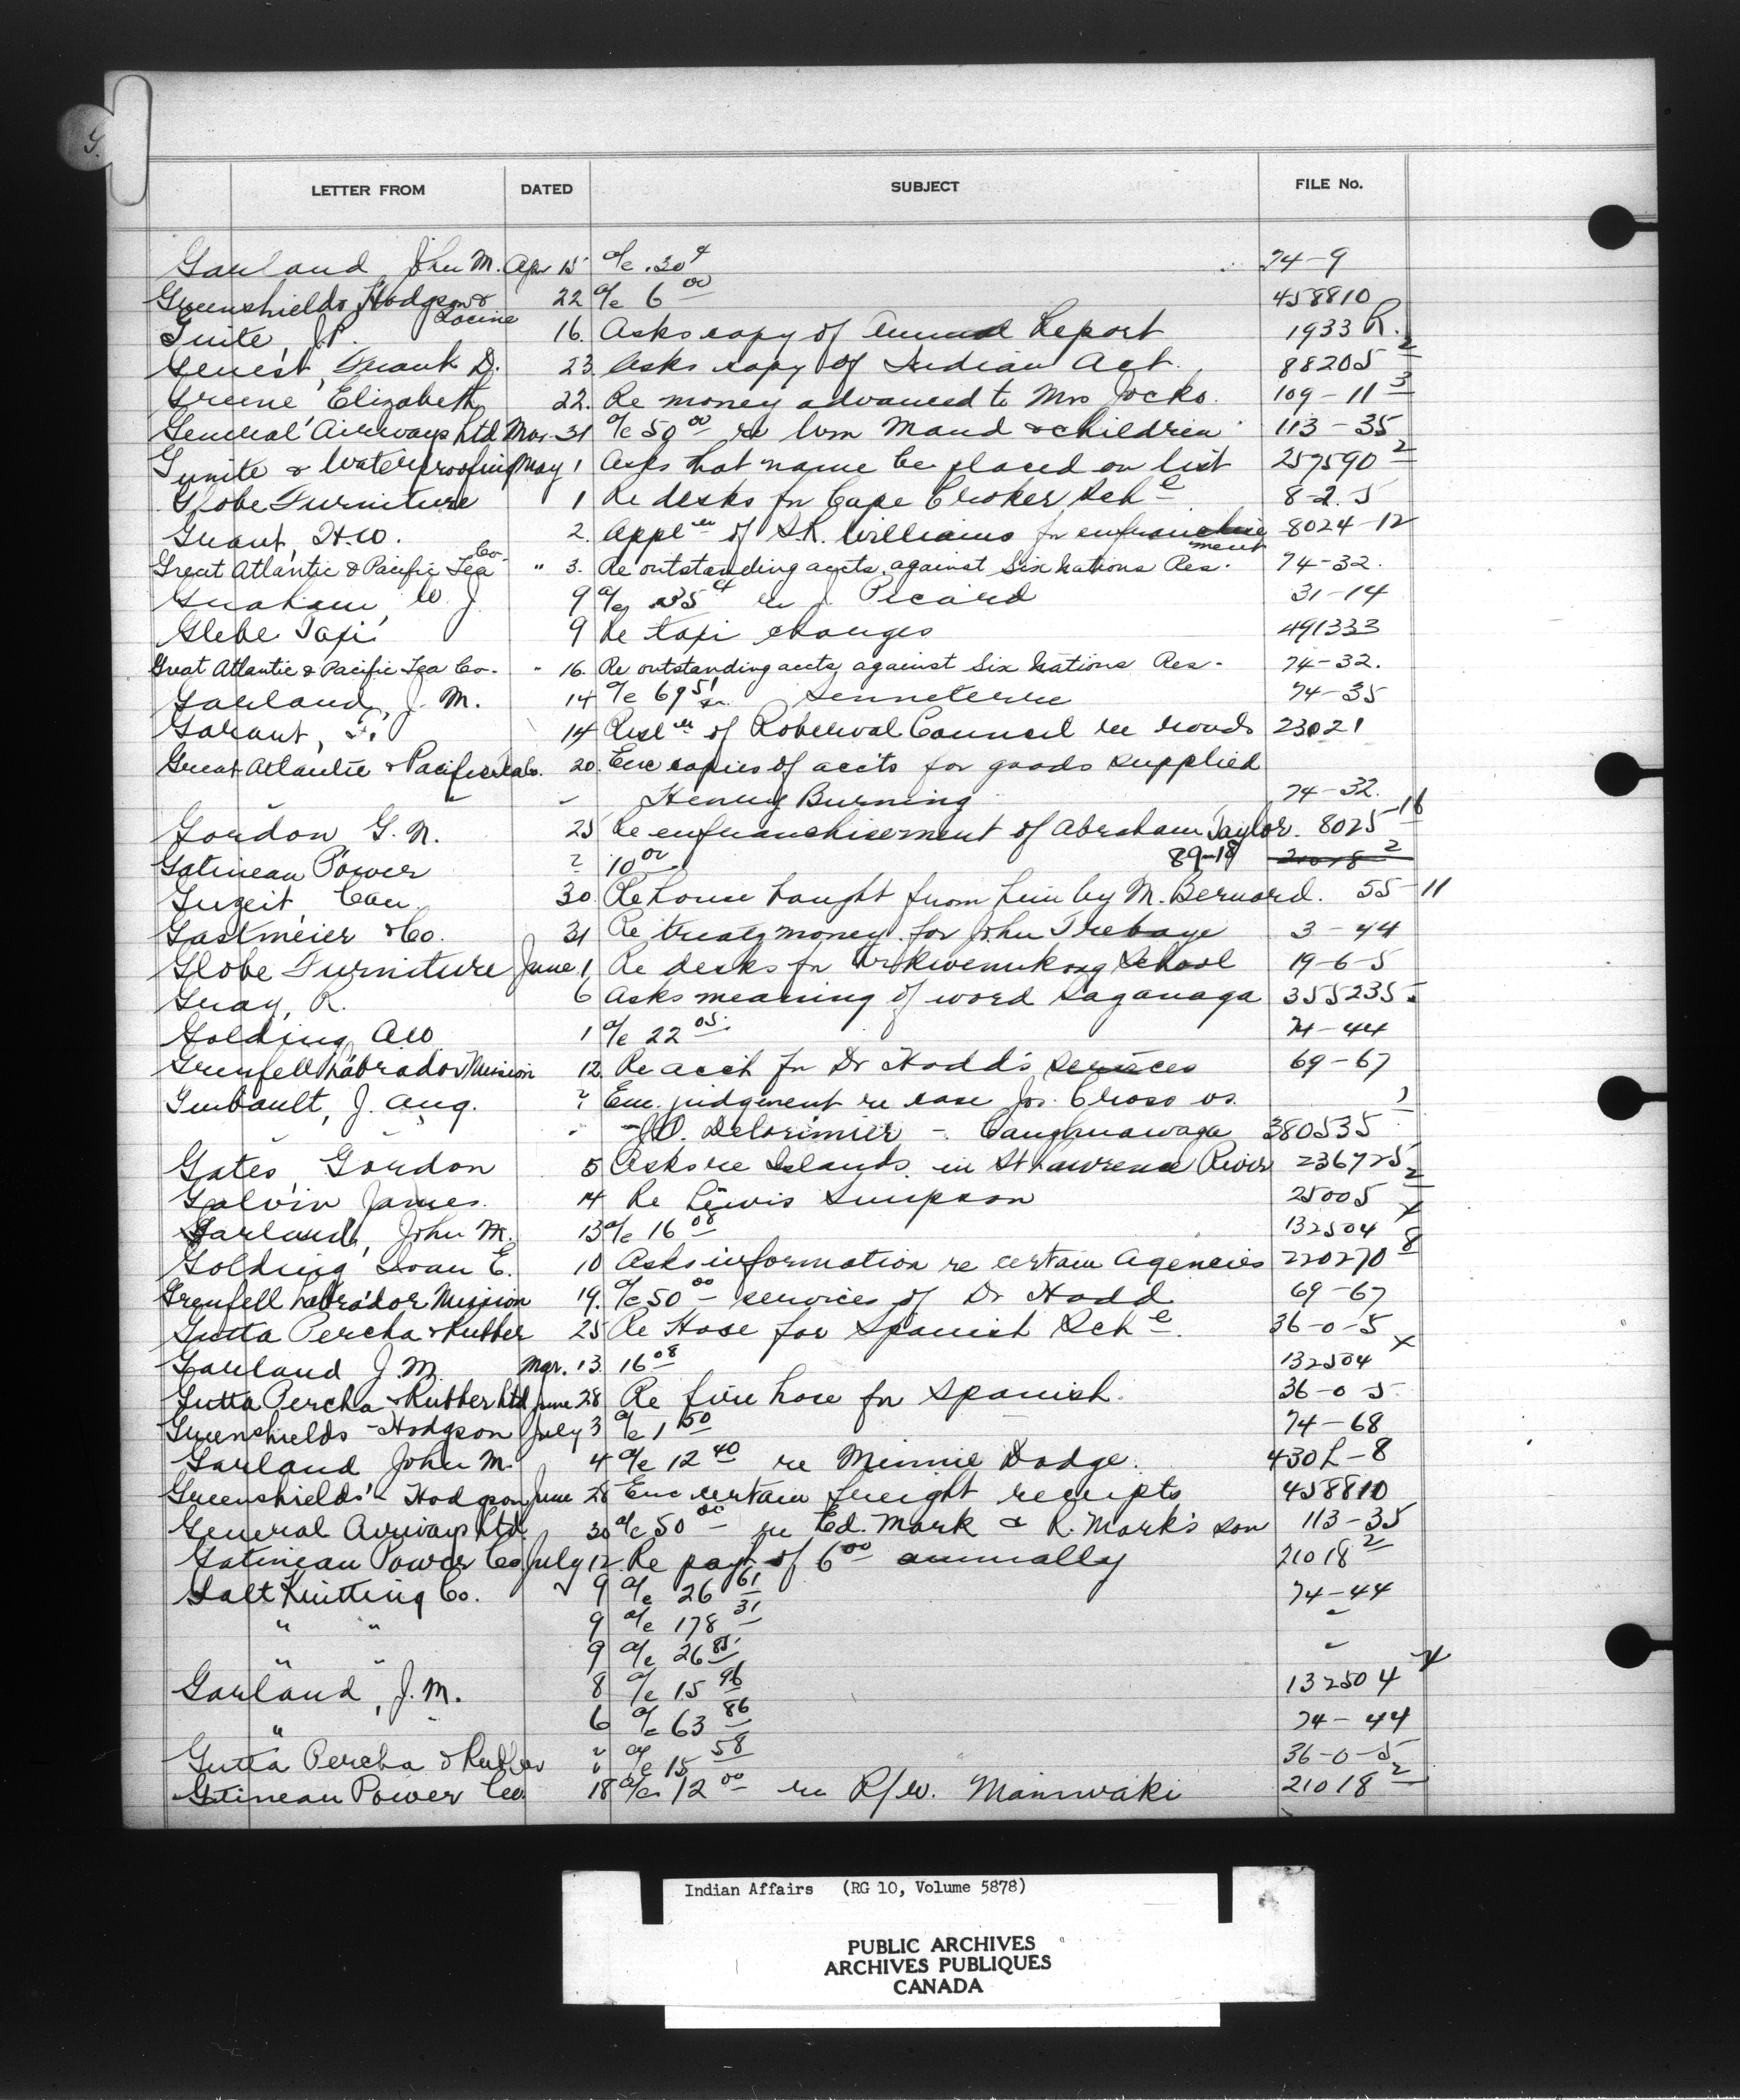 G.
LETTER FROM DATED SUBJECT FILE No.
Garland John M. Apr 15 a/c .30¢ 74-9
Greenshields Hodgson & Racine 22 a/c 6 00 458810
Guite, J.P. 16. Asks copy of Annual Report 1933 R.
Genest, Frank D. 23. Asks copy of Indian Act. 88205 2
Greene Elizabeth 22. Re money advanced to Mrs Jocko. 109-11 3
General Airways Ltd Mar. 31 a/c 50 00 re Wm Maud & children 113-35
Gunite & Waterproofing May 1 Asks that name be placed on list 257590 2
Globe Furniture 1 Re desks for Cape Croker Sch e 8-2.5
Grant, H.W. 2. Appl n of S.R. Williams for enfranchisement 8024-12
Great Atlantic & Pacific Tea Co- " 3. Re outstanding accts. against Six Nations Res. 74-32.
Graham, W.J. 9 a/c .35¢ re J. Picard 31-14
Glebe Taxi 9 Re taxi charges 491333
Great Atlantic & Pacific Tea Co- " 16. Re outstanding accts against Six Nations Res- 74-32.
Garland, J. M. 14 a/c 69 51 Senneterre 74-35
Garant, F. 14 Resl n of Roberval Council re roads 23021
Great Atlantic & Pacific Tea Co. 20. Enc copies of accts for goods supplied
" " Henry Burning 74-32.
Gordon G. N. 25 Re enfranchisement of Abraham Taylor. 8025-16
Gatineau Power ? 10 00 89-18 21018 2
30. Re house bought from him by M. Bernard. 55-11
Gastmeier & Co. 31 Re treaty money for John Trebaye 3-44
Globe Furniture June 1 Re desks for School 19-6-5
Gray, R. 6 Asks meaning of word Saganaga 355235.
Golding AW 1 a/c 22 05 74-44
Grenfell Labrador Mission 12. Re acct for Dr Hodd's services 69-67
Guibault, J. Aug. ? Enc. judgement re case Jos. Cross vs.
" - Delorimier - Caughnawaga 380535 1
Gates, Gordon 5 Asks re Islands in St Lawrence River 236725
Galvin James. 14 Re Lewis Simpson 25005 2
Garland, John M. 13 a/c 16 08 132504 x
Golding Evan E. 10 Asks information re certain Agencies 220270 8
Grenfell Labrador Mission 19. a/c 50 00 - services of Dr Hodd 69-67
Gutta Percha & Rubber 25 Re Hose for Spanish Sch e. 36-0-5
Garland J M. Mar. 13 16 08 132504 x
Gutta Percha & Rubber Ltd June 28 Re fire hose for Spanish. 36-0-5
Greenshields-Hodgson July 3 a/c 1 50 74-68
Garland John M. 4 a/c 12 40 re Minnie Dodge. 430L-8
Greenshields - Hodgson June 28 Enc certain freight receipts 458810
General Airways Ltd. 30 a/c 50 00 - re Ed. Mark & R. Mark's son 113-35
Gatineau Power Co July 12 Re payt of 6 00 annually 21018 2
Galt Knitting Co. 9 a/c 26 61 74-44
" " 9 a/c 178 31 "
" " 9 a/c 26 85 "
Garland, J.M. 8 a/c 15 96 132504 x
" " 6 a/c 63 86 74-44
Gutta Percha & Rubber " a/c 15 58 36-0-5
Gatineau Power Co. 18 a/c 12 00 re R/W. Maniwaki 21018 2
Indian Affairs (RG 10, Volume 5878)
PUBLIC ARCHIVES
ARCHIVES PUBLIQUES
CANADA